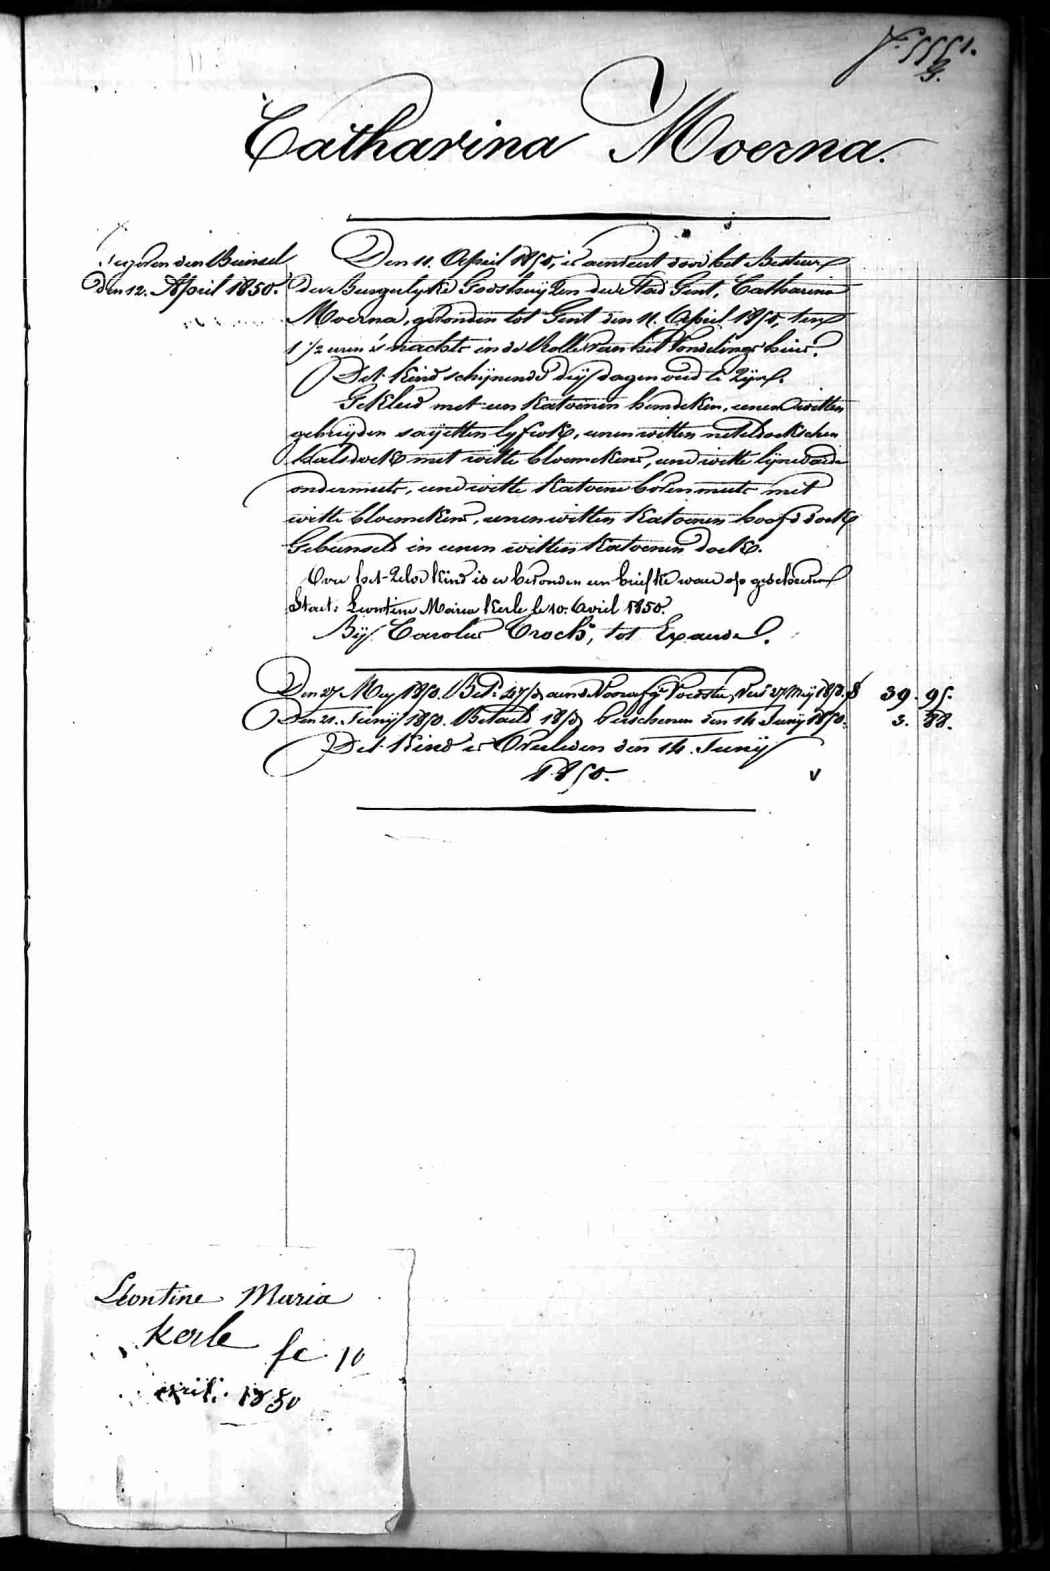 Catharina Moerna.
den 12. April 1850.
Den 11. April 1850, is aenveert door het Bestuur
der Burgerlyke Godshuyzen der Stad Gent, Catharina
Moerna, gevonden tot Gent den 11. April 1850, ten
1 1/2 uren 's nachts in de Rolle van het Vondelingshuis.
Dit Kind schijnende drij dagen oud te zijn.
Gekleed met een Katoenen hemdeken, eenen witten
gebreyden saijetten lyfrok, eenen witten neteldoekschen
halsdoek met witte bloemekens, eene witte lijnwaede
ondermuts, eene witte Katoene bovenmuts met
witte bloemekens, eenen witten Katoenen hoofddoek
Gebunseld in eenen witten Katoenen doek.
Over het zelve Kind is er bevonden een briefke waer op geschreven
Staet: Leontine Maria Kerle le 10. Avril 1850.
Bij Carolus Crock, tot Exaerde.
Den 27 Mey 1850. 27 Mey 1850. 39. 95.
Den 21. Junij 1850. Betaeld verschenen den 14 Junij 1850. 3. 88.
Dit Kind is Overleden den 14. Junij
1850.
v
Léontine Maria
Kerle
le 10
avril. 1850